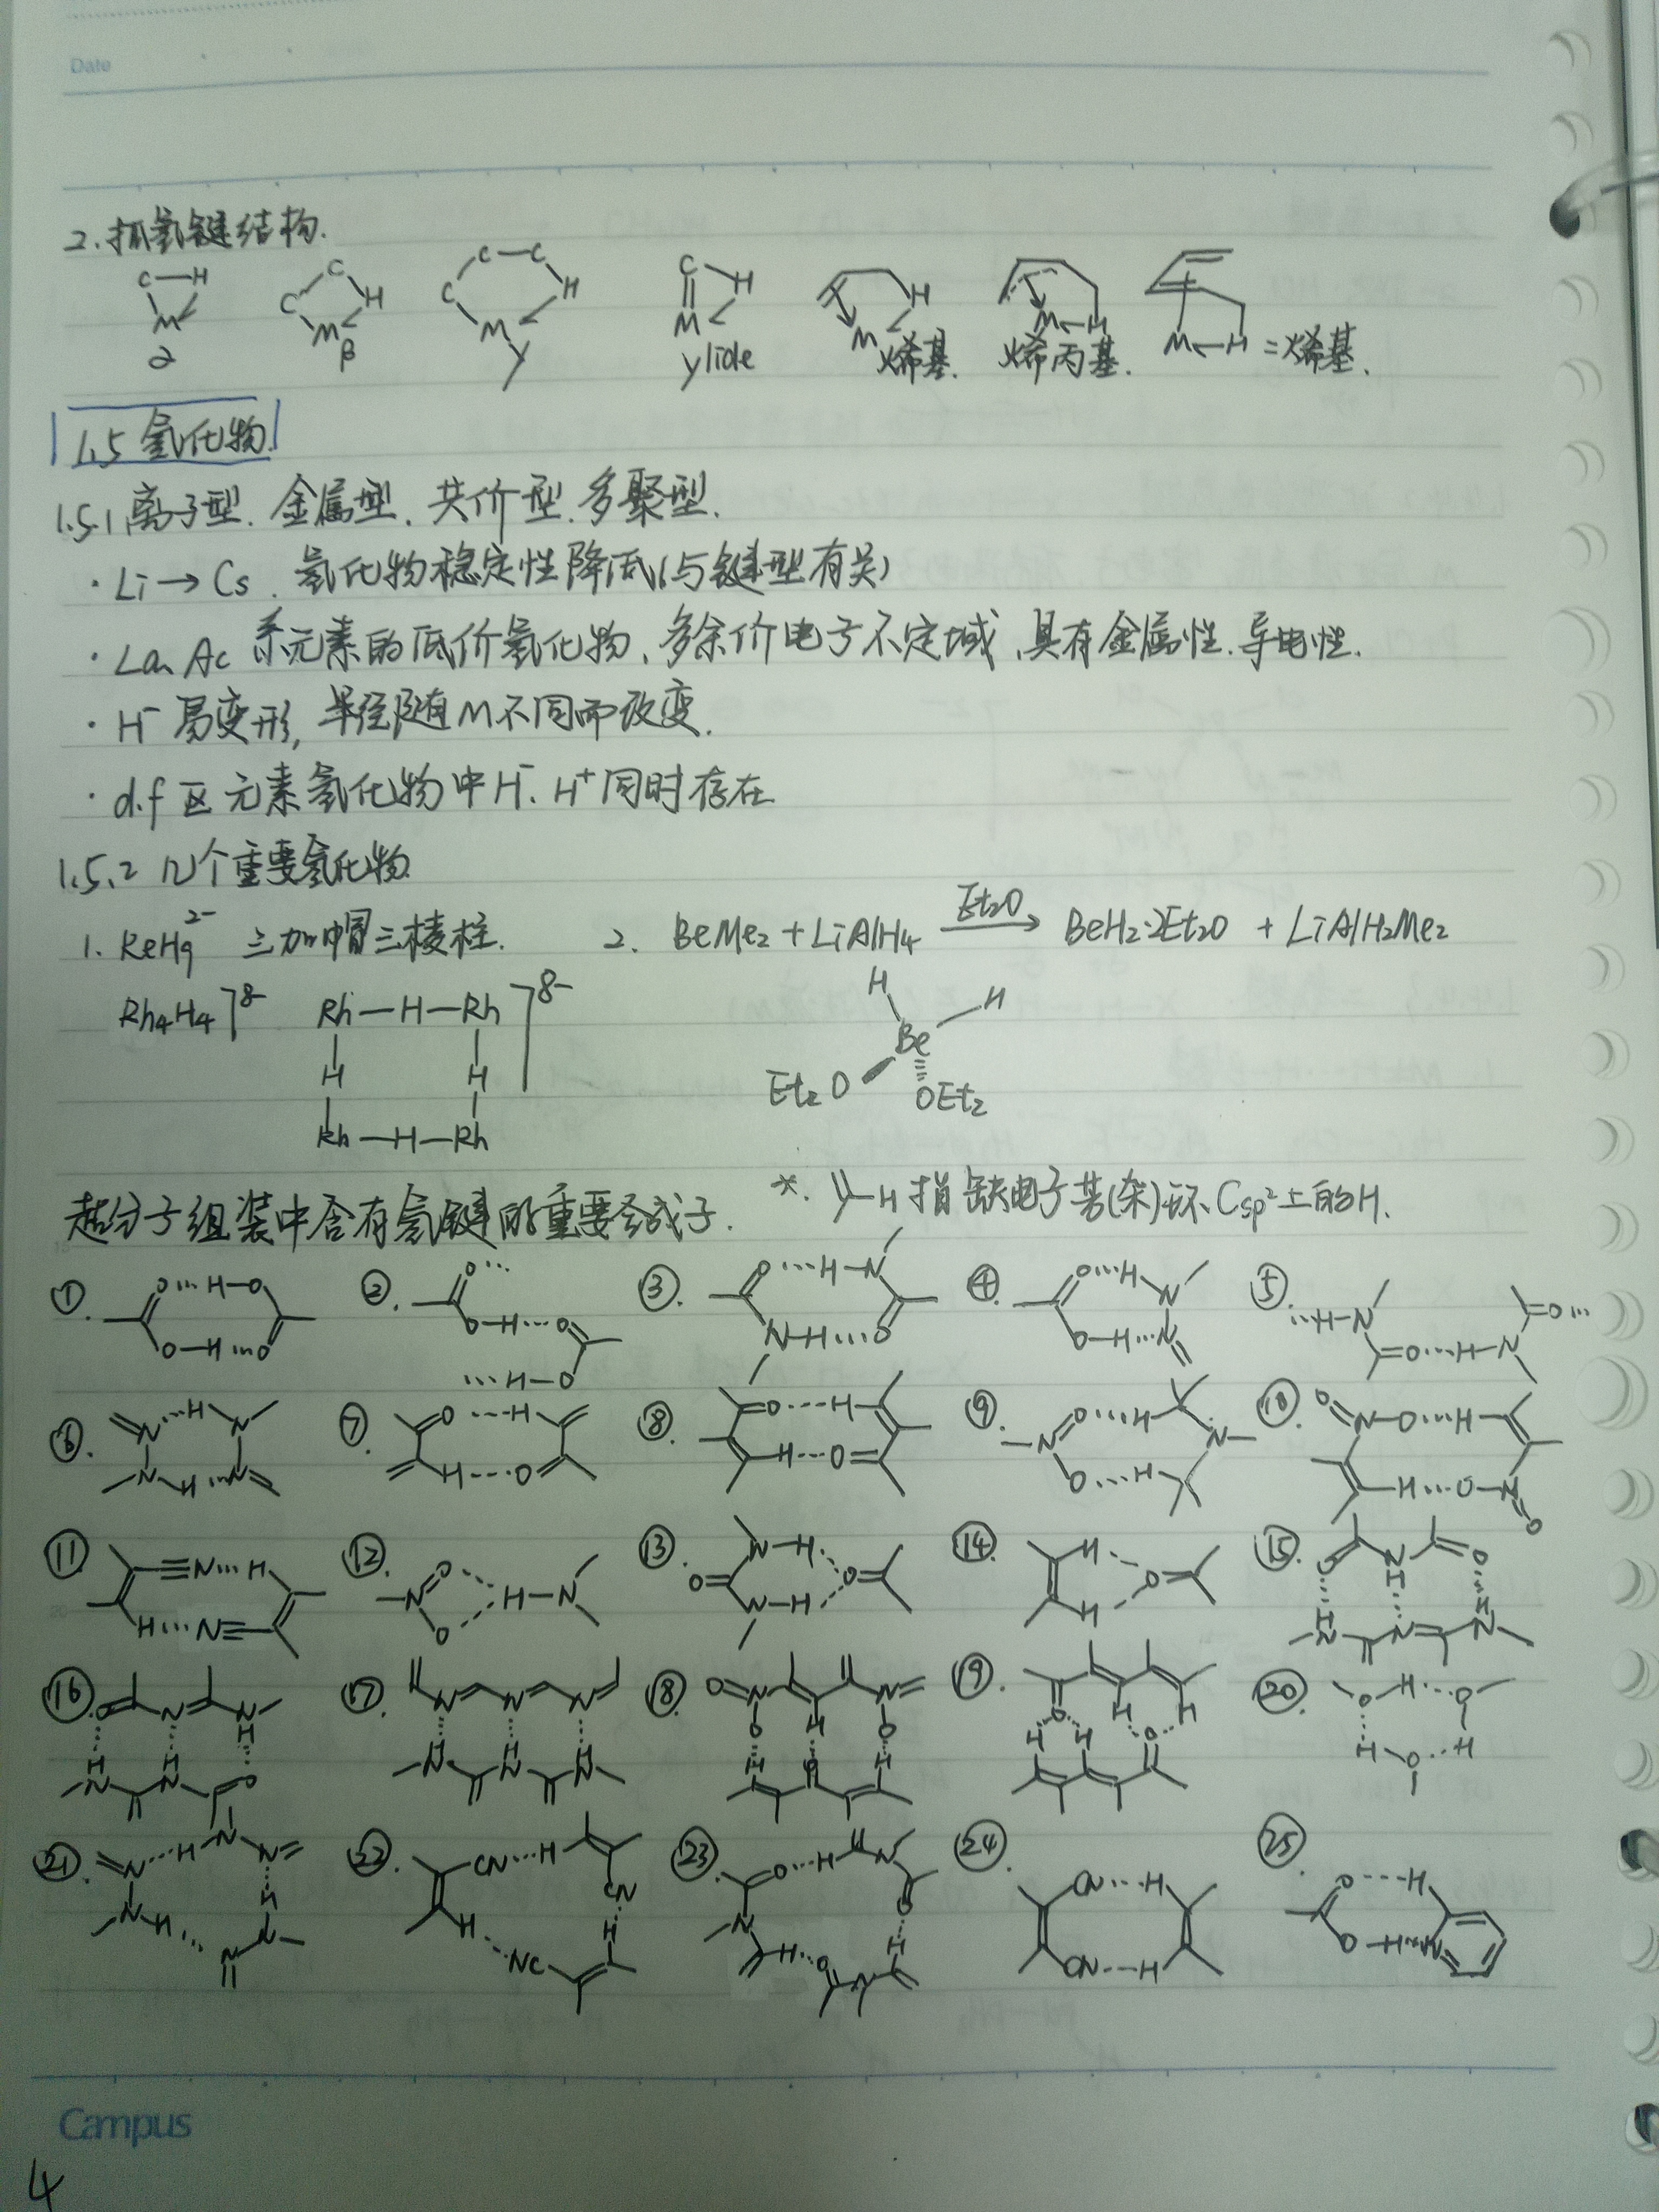 Date
2. 抓氢键结构.
C—H M α
C C H M β
C—C C H M γ
C H M ylide
H M 烯基.
M H 烯丙基.
M H 二烯基.
1.5 氢化物
1.5.1 离子型. 金属型. 共价型. 多聚型.
· Li → Cs. 氢化物稳定性降低(与键型有关)
· La、Ac 系元素的低价氢化物、多余价电子不定域、具有金属性.导电性.
· H⁻ 易变形, 半径随M不同而改变.
· d.f 区元素氢化物中H⁻. H⁺同时存在
1.5.2 几个重要氢化物
1. ReH₉²⁻ 三加帽三棱柱. 2. BeMe₂ + LiAlH₄ Et₂O → BeH₂·2Et₂O + LiAlH₂Me₂
Rh₄H₄]⁸⁻ Rh—H—Rh ]⁸⁻ H H
H H Be
Rh—H—Rh Et₂O OEt₂
*. —H 指缺电子苦(杂)环 Csp²上的H.
超分子组装中含有氢键的重要合成子.
①. O···H—O O—H···O ②. O··· O—H···O ···H—O ③. O···H—N N—H···O ④. O···H N O—H···N ⑤. ···H—N O···H—N O···
⑥. N···H N N H···N ⑦. O---H H---O ⑧. O---H H---O ⑨. N O···H O···H N ⑩. O N—O···H H···O—N O
⑪. ≡N···H H···N≡ ⑫. N O O H—N ⑬. O N—H N—H O ⑭. H H O ⑮. O N H O H N N H N
⑯. O N N H H N H N O ⑰. N N N H N H N H N ⑱. O N O H N O H O H ⑲. O H H H H O ⑳. O H···O H O H
㉑. N···H N N H N H N N ㉒. CN···H CN H H NC ㉓. O···H N O N H H O N ㉔. CN···H CN---H ㉕. O---H O—H···N
Campus
4